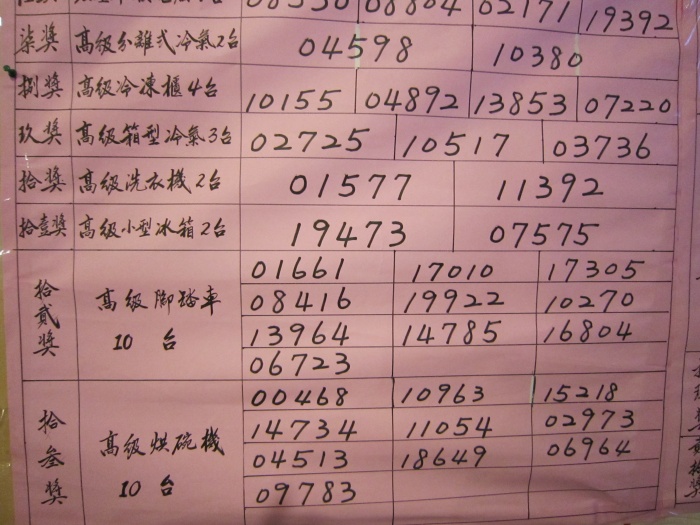 08804 02171 19392
柒獎 高級分離式冷氣2台 04598 10380
捌獎 高級冷凍櫃4台 10155 04892 13853 07220
玖獎 高級箱型冷氣3台 02725 10517 03736
拾獎 高級洗衣機2台 01577 11392
拾壹獎 高級小型冰箱2台 19473 07575
拾貳獎 高級腳踏車 10台
01661 17010 17305
08416 19922 10270
13964 14785 16804
06723
拾叁獎 高級烘碗機 10台
00468 10963 15218
14734 11054 02973
04513 18649 06964
09783